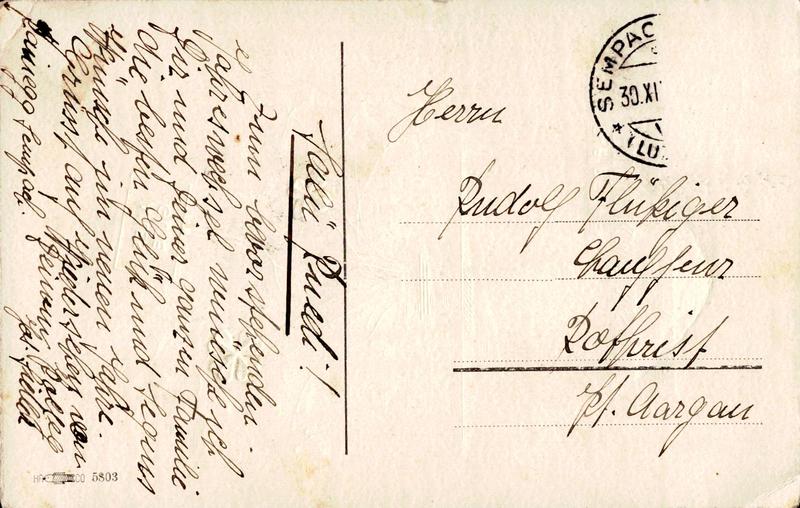 Salü Ruedi!
Zum bevorstehenden
Jahreswechsel wünsche ich
Dir und Deiner ganzen Familie
die besten Glück und Segens
Wünsche im neuen Jahre.
Gruss, auf Wiedersehen von
Deinem
Sempach.
Herrn
Rudolf Flükiger
Chauffeur
Rothrist
Kt. Aargau
* SEMPAC
30.XI
(LU
5803